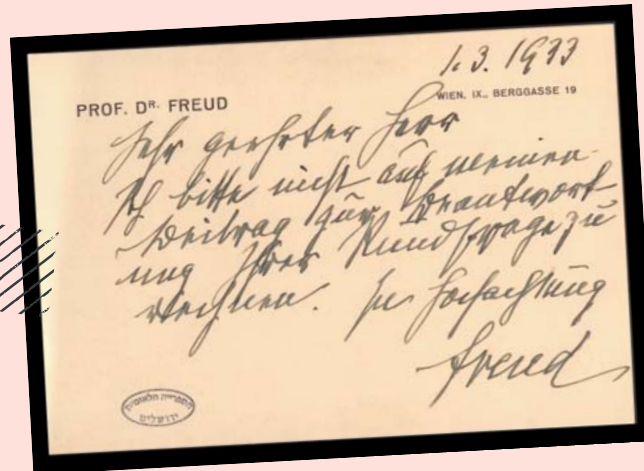 1. 3. 1933
PROF. DR. FREUD
WIEN, IX., BERGGASSE 19
Sehr geehrter Herr
Ich bitte nicht auf meinen
Beitrag zur Beantwort-
ung Ihrer Rundfrage zu
rechnen. In Hochachtung
Freud
הספרייה הלאומית
ירושלים